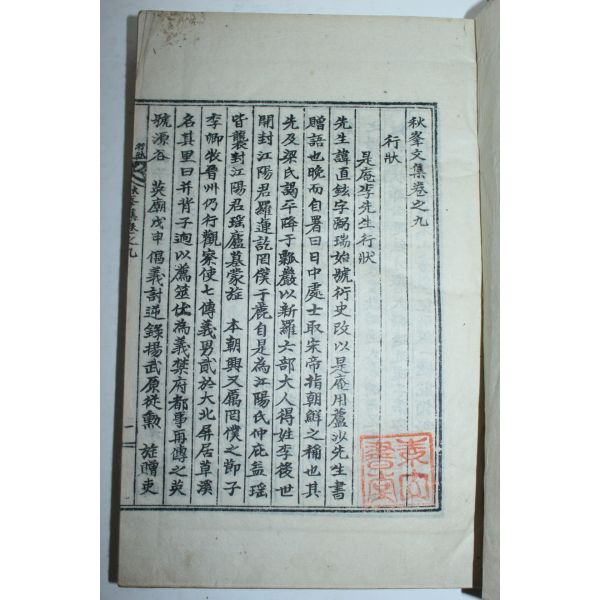 秋峯文集卷之九
行狀
是庵李先生行狀
先生諱直鉉字弼瑞始號衍史改以是庵用蘆沙先生書
贈語也晩而自署曰日中處士取宋帝指朝鮮之稱也其
先及梁氏謁平降于瓢巖以新羅六部大人得姓李後世
開封江陽君羅蓮訖罔僕于麗自是爲江陽氏仲庇益瑤
皆襲封江陽君瑤廬墓蒙旌 本朝興又厲罔僕之節子
李卿牧晋州仍行觀察使七傳義男貳於大北屏居草溪
名其里曰井背子逈以薦筮仕爲義禁府都事再傳之英
號源谷 英廟戊申倡義討逆錄揚武原從勲 旌贈吏
秋峯集卷之九
行狀
一
書堂